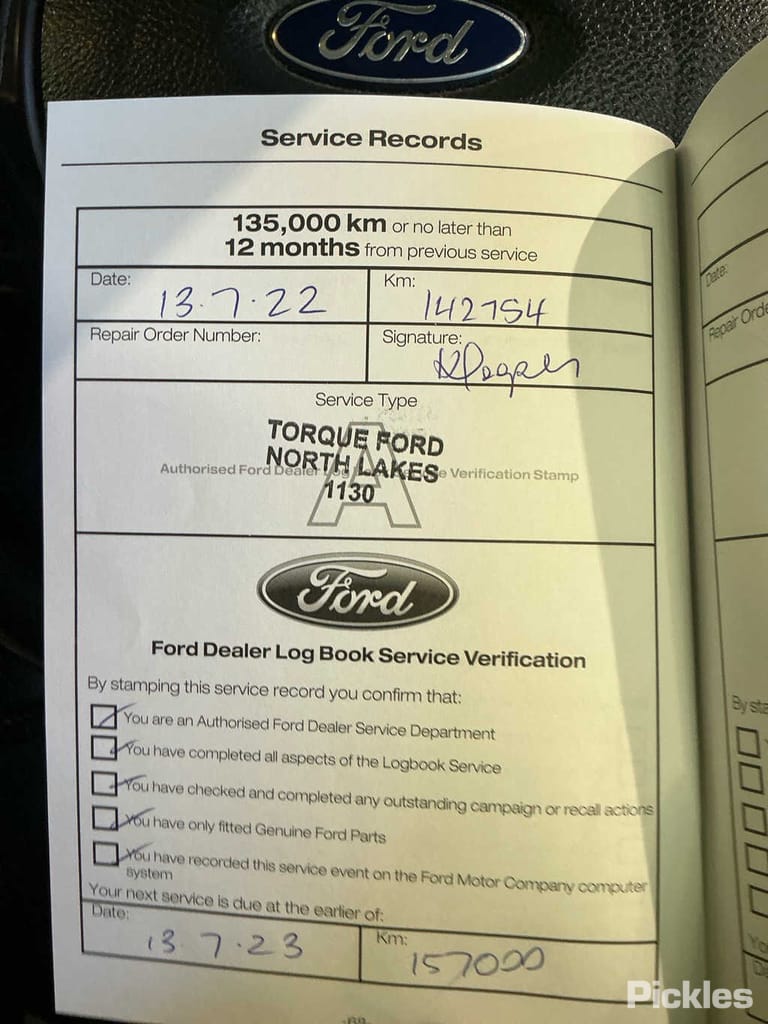 Ford
Service Records
135,000 km or no later than
12 months from previous service
Date:
13.7.22
Km:
142754
Repair Order Number:
Signature:
Service Type
TORQUE FORD
NORTH LAKES
1130
A
Authorised Ford Dealer Log e Verification Stamp
Ford
Ford Dealer Log Book Service Verification
By stamping this service record you confirm that:
You are an Authorised Ford Dealer Service Department
You have completed all aspects of the Logbook Service
You have checked and completed any outstanding campaign or recall actions
You have only fitted Genuine Ford Parts
You have recorded this service event on the Ford Motor Company computer
system
Your next service is due at the earlier of:
Date:
13.7.23
Km:
157000
Date:
Repair Orde
By sta
Yo
Da
Pickles